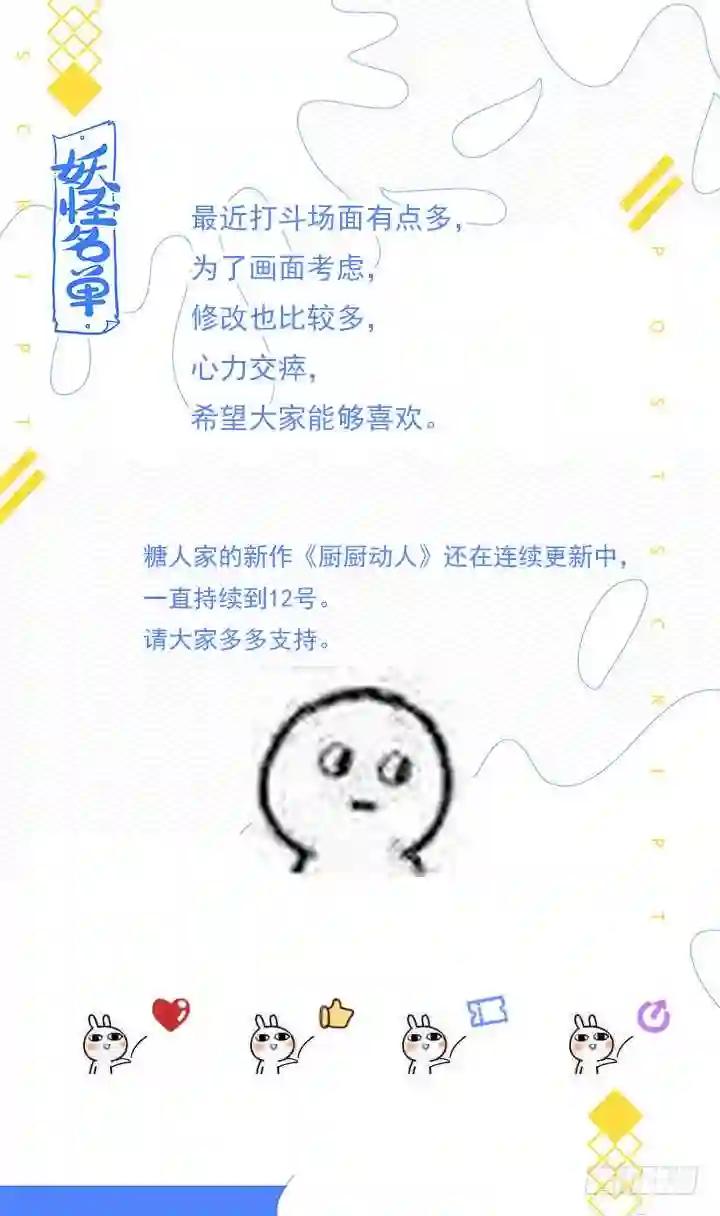 SCRIPT
妖怪名单
最近打斗场面有点多，
为了画面考虑，
修改也比较多，
心力交瘁，
希望大家能够喜欢。
POSTSCRIPT
糖人家的新作《厨厨动人》还在连续更新中，
一直持续到12号。
请大家多多支持。